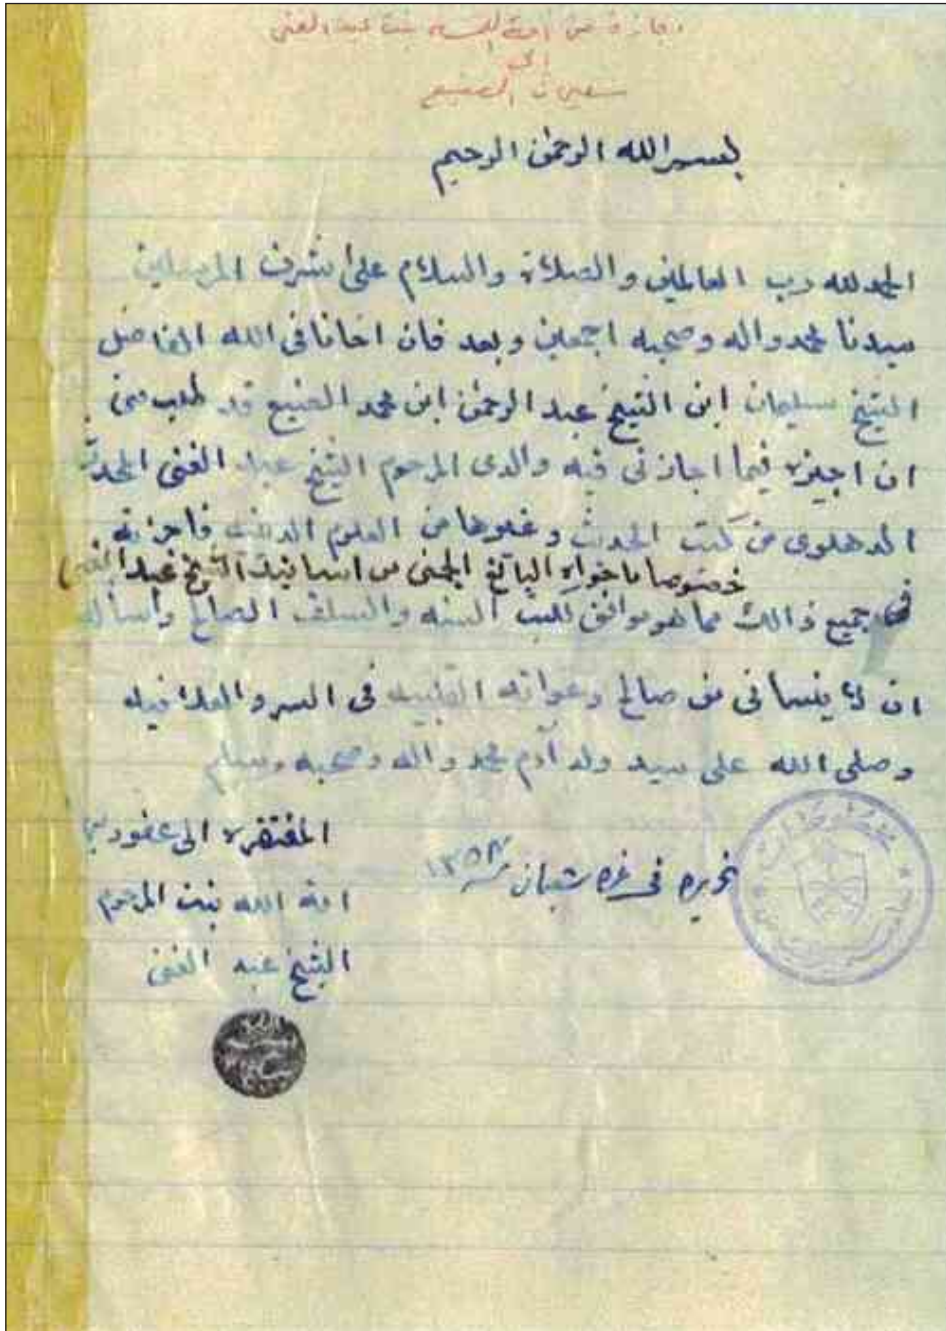 اجازة من امة الله بنت عبد الغني
الى
سليمان الصنيع
بسم الله الرحمن الرحيم
الحمد لله رب العالمين والصلاة والسلام على اشرف المرسلين
سيدنا محمد واله وصحبه اجمعين وبعد فان اخانا في الله الفاضل
الشيخ سليمان ابن الشيخ عبد الرحمن ابن محمد الصنيع قد طلب مني
ان اجيزه فيما اجازني فيه والدي المرحوم الشيخ عبد الغني المحدث
الدهلوي من كتب الحديث وغيرها من العلوم الدينيه فاجزته
خصوصا ما حواه اليانع الجني من اسانيد الشيخ عبد الغني
في جميع ذالك مما هو موافق للكتاب السنه والسلف الصالح واسأله
ان لا ينساني من صالح دعواته القلبيه في السر والعلانيه
وصلى الله على سيد ولد آدم محمد واله وصحبه وسلم
المفتقره الى عفو ربها
تحريره في غره شعبان ١٣٥٨
امة الله بنت المرحوم
الشيخ عبد الغني